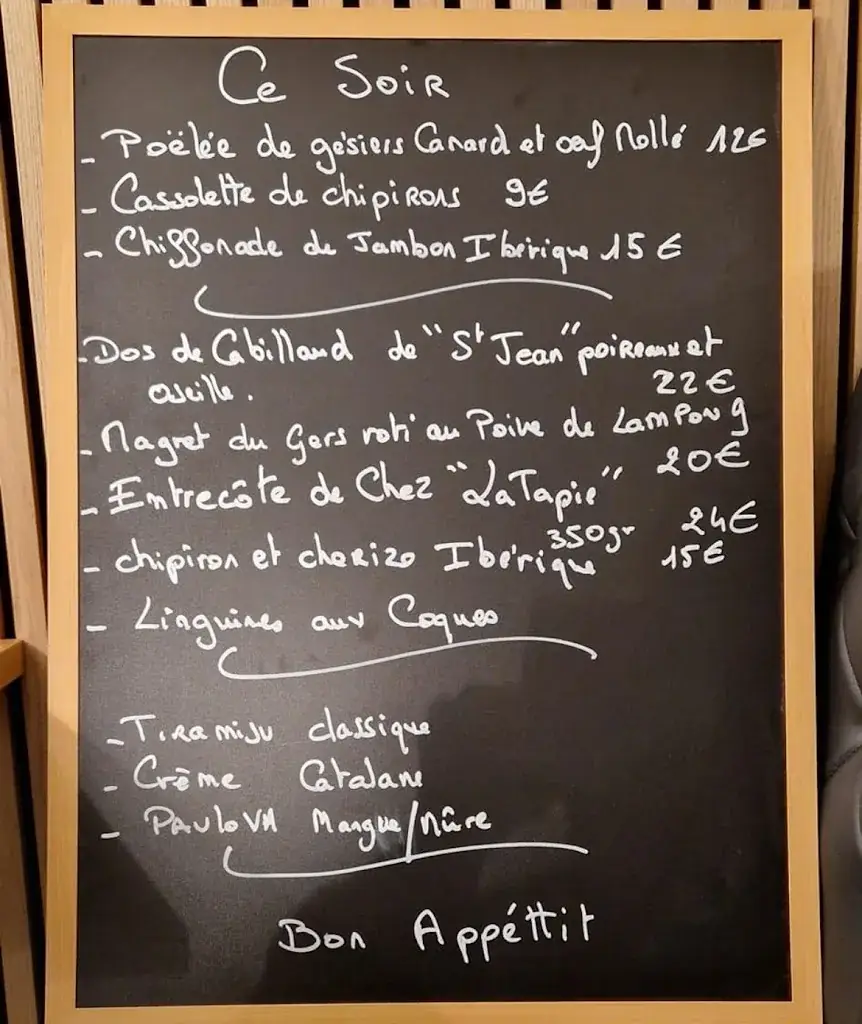 Ce Soir
- Poëlée de gésiers Canard et oeuf Mollé 12€
- Cassolette de chipirons 9€
- Chiffonade de Jambon Ibérique 15€
- Dos de Cabillaud de "St Jean" poireaux et
oseille. 22€
- Magret du Gers roti au Poivre de Lampong
20€
- Entrecôte de Chez "LaTapie"
350gr 24€
- chipiron et chorizo Ibérique 15€
- Linguines aux Coques
- Tiramisu classique
- Crème Catalane
- PAvloVA Mangue/Mûre
Bon Appéttit